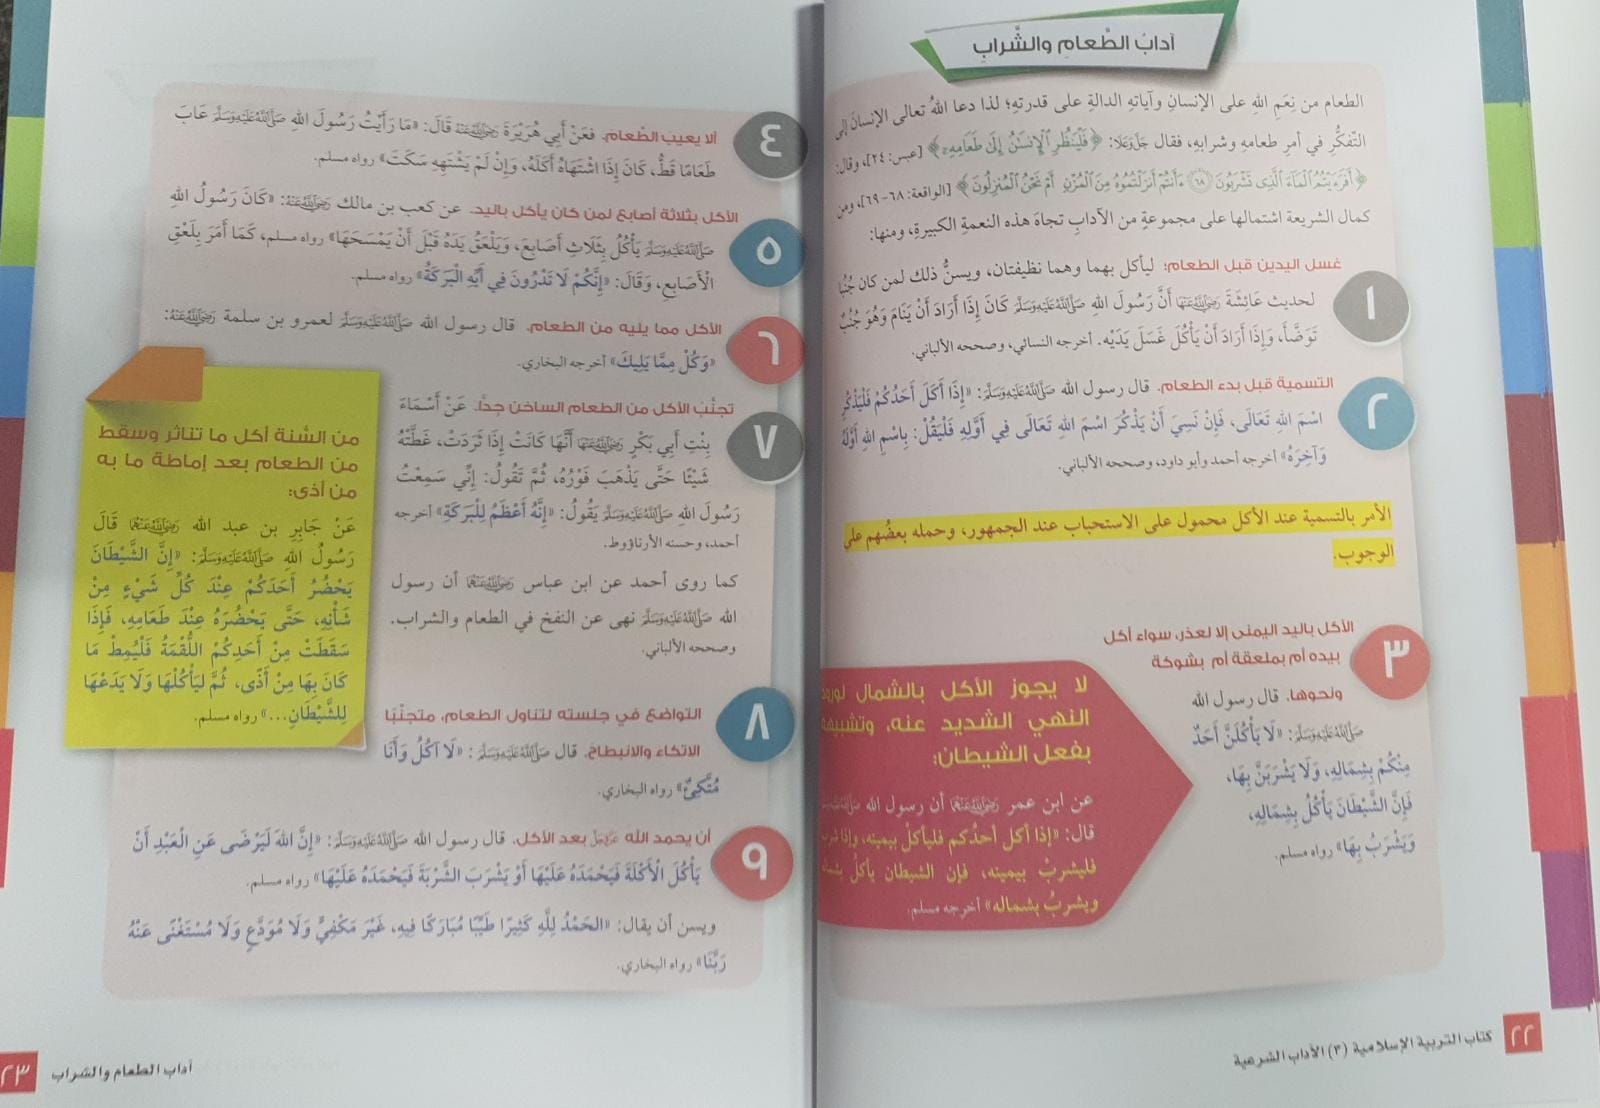 آدابُ الطَّعامِ والشَّرابِ
الطعام من نِعَمِ اللهِ على الإنسانِ وآياتهِ الدالةِ على قدرتهِ؛ لذا دعا اللهُ تعالى الإنسانَ إلى
التّفكُّرِ في أمرِ طعامهِ وشرابهِ، فقال جَلَّ وَعَلَا: ﴿فَلْيَنظُرِ ٱلْإِنسَٰنُ إِلَىٰ طَعَامِهِۦ﴾ [عبس: ٢٤]، وقال:
﴿أَفَرَءَيْتُمُ ٱلْمَآءَ ٱلَّذِى تَشْرَبُونَ ٦٨ ءَأَنتُمْ أَنزَلْتُمُوهُ مِنَ ٱلْمُزْنِ أَمْ نَحْنُ ٱلْمُنزِلُونَ﴾ [الواقعة: ٦٨-٦٩]، ومن
كمال الشريعة اشتمالها على مجموعةٍ من الآدابِ تجاهَ هذه النعمةِ الكبيرةِ، ومنها:
١
غسل اليدين قبل الطعام؛ ليأكل بهما وهما نظيفتان، ويسنُّ ذلك لمن كان جُنُبًا
لحديث عَائِشَةَ رَضِيَ اللَّهُ عَنْهَا أَنَّ رَسُولَ اللهِ صَلَّى اللَّهُ عَلَيْهِ وَسَلَّمَ كَانَ إِذَا أَرَادَ أَنْ يَنَامَ وَهُوَ جُنُبٌ
تَوَضَّأَ، وَإِذَا أَرَادَ أَنْ يَأْكُلَ غَسَلَ يَدَيْهِ. أخرجه النسائي، وصححه الألباني.
٢
التسمية قبل بدء الطعام. قال رسول الله صَلَّى اللَّهُ عَلَيْهِ وَسَلَّمَ: «إِذَا أَكَلَ أَحَدُكُمْ فَلْيَذْكُرِ
اسْمَ اللهِ تَعَالَى، فَإِنْ نَسِيَ أَنْ يَذْكُرَ اسْمَ اللهِ تَعَالَى فِي أَوَّلِهِ فَلْيَقُلْ: بِاسْمِ اللهِ أَوَّلَهُ
وَآخِرَهُ» أخرجه أحمد وأبو داود، وصححه الألباني.
الأمر بالتسمية عند الأكل محمول على الاستحباب عند الجمهور، وحمله بعضُهم على
الوجوب.
٣
الأكل باليد اليمنى إلا لعذر، سواء أكل
بيده أم بملعقة أم بشوكة
ونحوها. قال رسول الله
صَلَّى اللَّهُ عَلَيْهِ وَسَلَّمَ: «لَا يَأْكُلَنَّ أَحَدٌ
مِنْكُمْ بِشِمَالِهِ، وَلَا يَشْرَبَنَّ بِهَا،
فَإِنَّ الشَّيْطَانَ يَأْكُلُ بِشِمَالِهِ،
وَيَشْرَبُ بِهَا» رواه مسلم.
لا يجوز الأكل بالشمال لورود
النهي الشديد عنه، وتشبيهه
بفعل الشيطان:
عن ابن عمر رَضِيَ اللَّهُ عَنْهُمَا أن رسول الله صَلَّى اللَّهُ عَلَيْهِ وَسَلَّمَ
قال: «إذا أكل أحدُكم فليأكلْ بيمينه، وإذا شرب
فليشربْ بيمينه، فإن الشيطان يأكلُ بشماله
ويشربُ بشماله» أخرجه مسلم.
٢٢
كتاب التربية الإسلامية (٣) الآداب الشرعية
٤
ألا يعيبَ الطَّعام. فعَنْ أَبِي هُرَيْرَةَ رَضِيَ اللَّهُ عَنْهُ قَالَ: «مَا رَأَيْتُ رَسُولَ اللهِ صَلَّى اللَّهُ عَلَيْهِ وَسَلَّمَ عَابَ
طَعَامًا قَطُّ، كَانَ إِذَا اشْتَهَاهُ أَكَلَهُ، وَإِنْ لَمْ يَشْتَهِهِ سَكَتَ» رواه مسلم.
٥
الأكل بثلاثة أصابع لمن كان يأكل باليد. عن كعب بن مالك رَضِيَ اللَّهُ عَنْهُ: «كَانَ رَسُولُ اللهِ
صَلَّى اللَّهُ عَلَيْهِ وَسَلَّمَ يَأْكُلُ بِثَلَاثِ أَصَابِعَ، وَيَلْعَقُ يَدَهُ قَبْلَ أَنْ يَمْسَحَهَا» رواه مسلم، كَمَا أَمَرَ بِلَعْقِ
الْأَصَابِعِ، وَقَالَ: «إِنَّكُمْ لَا تَدْرُونَ فِي أَيِّهِ الْبَرَكَةُ» رواه مسلم.
٦
الأكل مما يليه من الطعام. قال رسول الله صَلَّى اللَّهُ عَلَيْهِ وَسَلَّمَ لعمرو بن سلمة رَضِيَ اللَّهُ عَنْهُ:
«وَكُلْ مِمَّا يَلِيكَ» أخرجه البخاري.
٧
تجنُّبُ الأكل من الطعام الساخن جدًّا. عَنْ أَسْمَاءَ
بِنْتِ أَبِي بَكْرٍ رَضِيَ اللَّهُ عَنْهَا أَنَّهَا كَانَتْ إِذَا ثَرَدَتْ، غَطَّتْهُ
شَيْئًا حَتَّى يَذْهَبَ فَوْرُهُ، ثُمَّ تَقُولُ: إِنِّي سَمِعْتُ
رَسُولَ اللهِ صَلَّى اللَّهُ عَلَيْهِ وَسَلَّمَ يَقُولُ: «إِنَّهُ أَعْظَمُ لِلْبَرَكَةِ» أخرجه
أحمد، وحسنه الأرناؤوط.
كما روى أحمد عن ابن عباس رَضِيَ اللَّهُ عَنْهُمَا أن رسول
الله صَلَّى اللَّهُ عَلَيْهِ وَسَلَّمَ نهى عن النفخ في الطعام والشراب.
وصححه الألباني.
من السُّنة أكل ما تناثر وسقط
من الطعام بعد إماطة ما به
من أذى:
عَنْ جَابِرِ بن عبد الله رَضِيَ اللَّهُ عَنْهُمَا قَالَ
رَسُولُ اللهِ صَلَّى اللَّهُ عَلَيْهِ وَسَلَّمَ: «إِنَّ الشَّيْطَانَ
يَحْضُرُ أَحَدَكُمْ عِنْدَ كُلِّ شَيْءٍ مِنْ
شَأْنِهِ، حَتَّى يَحْضُرَهُ عِنْدَ طَعَامِهِ، فَإِذَا
سَقَطَتْ مِنْ أَحَدِكُمُ اللُّقْمَةُ فَلْيُمِطْ مَا
كَانَ بِهَا مِنْ أَذًى، ثُمَّ لْيَأْكُلْهَا وَلَا يَدَعْهَا
لِلشَّيْطَانِ...» رواه مسلم.
٨
التواضع في جلسته لتناول الطعام، متجنّبًا
الاتكاء والانبطاح. قال صَلَّى اللَّهُ عَلَيْهِ وَسَلَّمَ: «لَا آكُلُ وَأَنَا
مُتَّكِئٌ» رواه البخاري.
٩
أن يحمد الله عَزَّ وَجَلَّ بعد الأكل. قال رسول الله صَلَّى اللَّهُ عَلَيْهِ وَسَلَّمَ: «إِنَّ اللهَ لَيَرْضَى عَنِ الْعَبْدِ أَنْ
يَأْكُلَ الْأَكْلَةَ فَيَحْمَدَهُ عَلَيْهَا أَوْ يَشْرَبَ الشَّرْبَةَ فَيَحْمَدَهُ عَلَيْهَا» رواه مسلم.
ويسن أن يقال: «الحَمْدُ لِلَّهِ كَثِيرًا طَيِّبًا مُبَارَكًا فِيهِ، غَيْرَ مَكْفِيٍّ وَلَا مُوَدَّعٍ وَلَا مُسْتَغْنًى عَنْهُ
رَبَّنَا» رواه البخاري.
آداب الطعام والشراب
٢٣